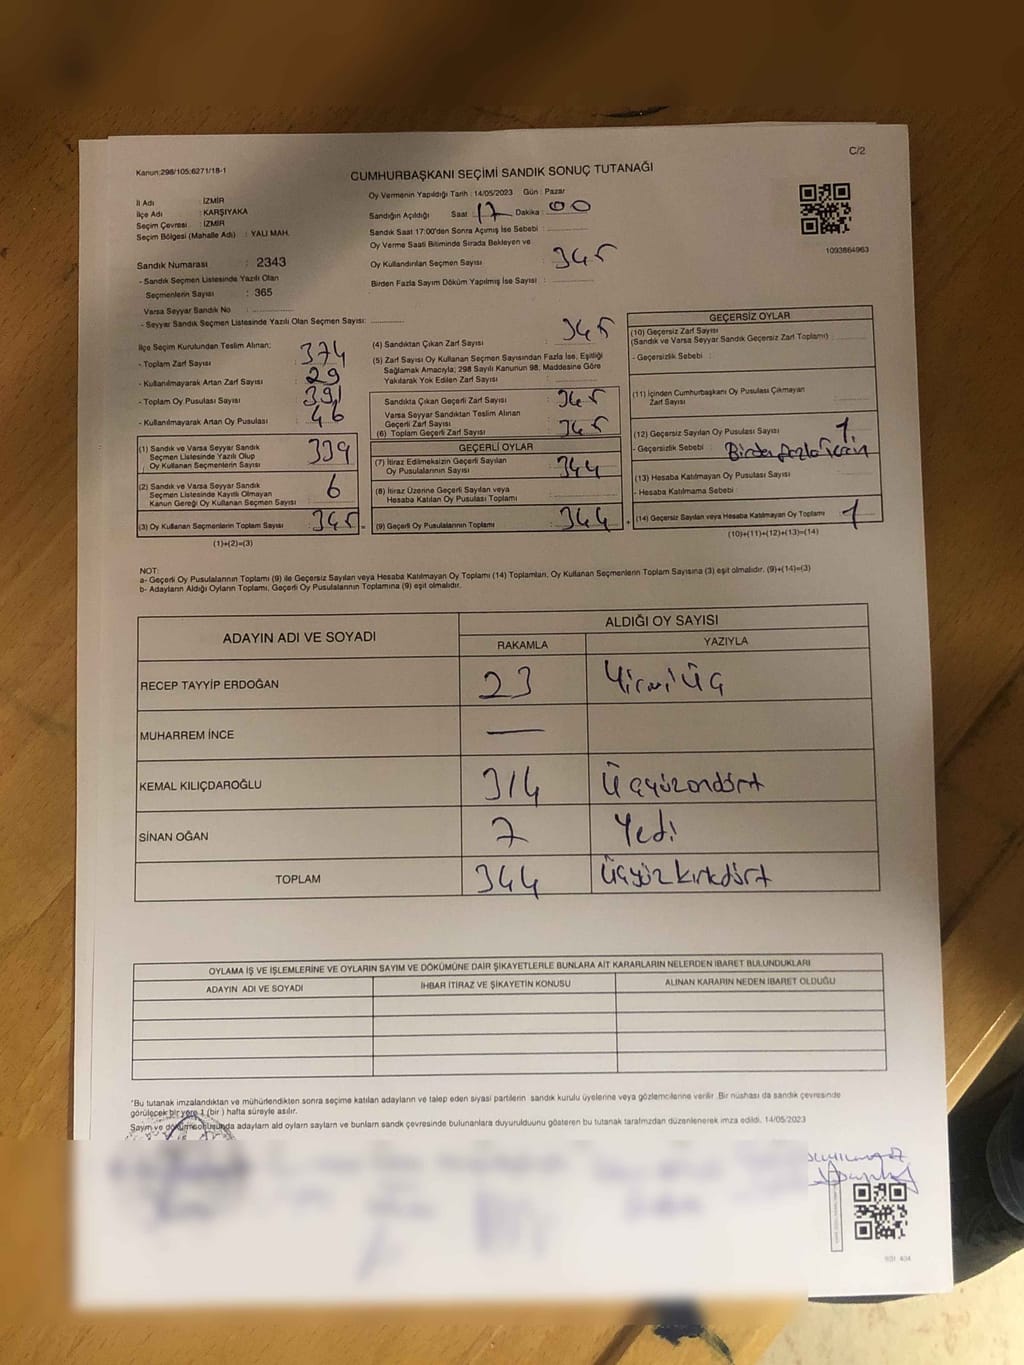 Kanun:298/105;6271/18-1
C/2
CUMHURBAŞKANI SEÇİMİ SANDIK SONUÇ TUTANAĞI
İl Adı : İZMİR
İlçe Adı : KARŞIYAKA
Seçim Çevresi : İZMİR
Seçim Bölgesi (Mahalle Adı) : YALI MAH.
Sandık Numarası : 2343
- Sandık Seçmen Listesinde Yazılı Olan
Seçmenlerin Sayısı : 365
Varsa Seyyar Sandık No :
- Seyyar Sandık Seçmen Listesinde Yazılı Olan Seçmen Sayısı:
Oy Vermenin Yapıldığı Tarih : 14/05/2023 Gün : Pazar
Sandığın Açıldığı Saat 17 Dakika : 00
Sandık Saat 17:00'den Sonra Açılmış İse Sebebi :
Oy Verme Saati Bitiminde Sırada Bekleyen ve
Oy Kullandırılan Seçmen Sayısı : 345
Birden Fazla Sayım Döküm Yapılmış İse Sayısı :
1093864963
İlçe Seçim Kurulundan Teslim Alınan:
- Toplam Zarf Sayısı : 374
- Kullanılmayarak Artan Zarf Sayısı : 29
- Toplam Oy Pusulası Sayısı : 391
- Kullanılmayarak Artan Oy Pusulası : 46
(1) Sandık ve Varsa Seyyar Sandık
Seçmen Listesinde Yazılı Olup
Oy Kullanan Seçmenlerin Sayısı : 339
(2) Sandık ve Varsa Seyyar Sandık
Seçmen Listesinde Kayıtlı Olmayan
Kanun Gereği Oy Kullanan Seçmen Sayısı : 6
(3) Oy Kullanan Seçmenlerin Toplam Sayısı : 345
(1)+(2)=(3)
(4) Sandıktan Çıkan Zarf Sayısı : 345
(5) Zarf Sayısı Oy Kullanan Seçmen Sayısından Fazla İse, Eşitliği
Sağlamak Amacıyla; 298 Sayılı Kanunun 98. Maddesine Göre
Yakılarak Yok Edilen Zarf Sayısı :
Sandıkta Çıkan Geçerli Zarf Sayısı : 345
Varsa Seyyar Sandıktan Teslim Alınan
Geçerli Zarf Sayısı :
(6) Toplam Geçerli Zarf Sayısı : 345
GEÇERLİ OYLAR
(7) İtiraz Edilmeksizin Geçerli Sayılan
Oy Pusulalarının Sayısı : 344
(8) İtiraz Üzerine Geçerli Sayılan veya
Hesaba Katılan Oy Pusulası Toplamı :
(9) Geçerli Oy Pusulalarının Toplamı : 344
GEÇERSİZ OYLAR
(10) Geçersiz Zarf Sayısı
(Sandık ve Varsa Seyyar Sandık Geçersiz Zarf Toplamı) :
- Geçersizlik Sebebi :
(11) İçinden Cumhurbaşkanı Oy Pusulası Çıkmayan
Zarf Sayısı :
(12) Geçersiz Sayılan Oy Pusulası Sayısı : 1
- Geçersizlik Sebebi : Birden fazla
(13) Hesaba Katılmayan Oy Pusulası Sayısı :
- Hesaba Katılmama Sebebi :
(14) Geçersiz Sayılan veya Hesaba Katılmayan Oy Toplamı : 1
(10)+(11)+(12)+(13)=(14)
NOT:
a- Geçerli Oy Pusulalarının Toplamı (9) ile Geçersiz Sayılan veya Hesaba Katılmayan Oy Toplamı (14) Toplamları, Oy Kullanan Seçmenlerin Toplam Sayısına (3) eşit olmalıdır. (9)+(14)=(3)
b- Adayların Aldığı Oyların Toplamı, Geçerli Oy Pusulalarının Toplamına (9) eşit olmalıdır.
ADAYIN ADI VE SOYADI
ALDIĞI OY SAYISI
RAKAMLA YAZIYLA
RECEP TAYYİP ERDOĞAN 23 Yirmi üç
MUHARREM İNCE —
KEMAL KILIÇDAROĞLU 314 Üçyüzondört
SİNAN OĞAN 7 Yedi
TOPLAM 344 Üçyüzkırkdört
OYLAMA İŞ VE İŞLEMLERİNE VE OYLARIN SAYIM VE DÖKÜMÜNE DAİR ŞİKAYETLERLE BUNLARA AİT KARARLARIN NELERDEN İBARET BULUNDUKLARI
ADAYIN ADI VE SOYADI İHBAR İTİRAZ VE ŞİKAYETİN KONUSU ALINAN KARARIN NEDEN İBARET OLDUĞU
*Bu tutanak imzalandıktan ve mühürlendikten sonra seçime katılan adayların ve talep eden siyasi partilerin sandık kurulu üyelerine veya gözlemcilerine verilir. Bir nüshası da sandık çevresinde
görülecek bir yere 1 (bir) hafta süreyle asılır.
Sayım ve dökümsonusunda adayların ald oyların sayların ve bunların sandk çevresinde bulunanlara duyurulduunu gösteren bu tutanak tarafmzdan düzenlenerek imza edildi. 14/05/2023